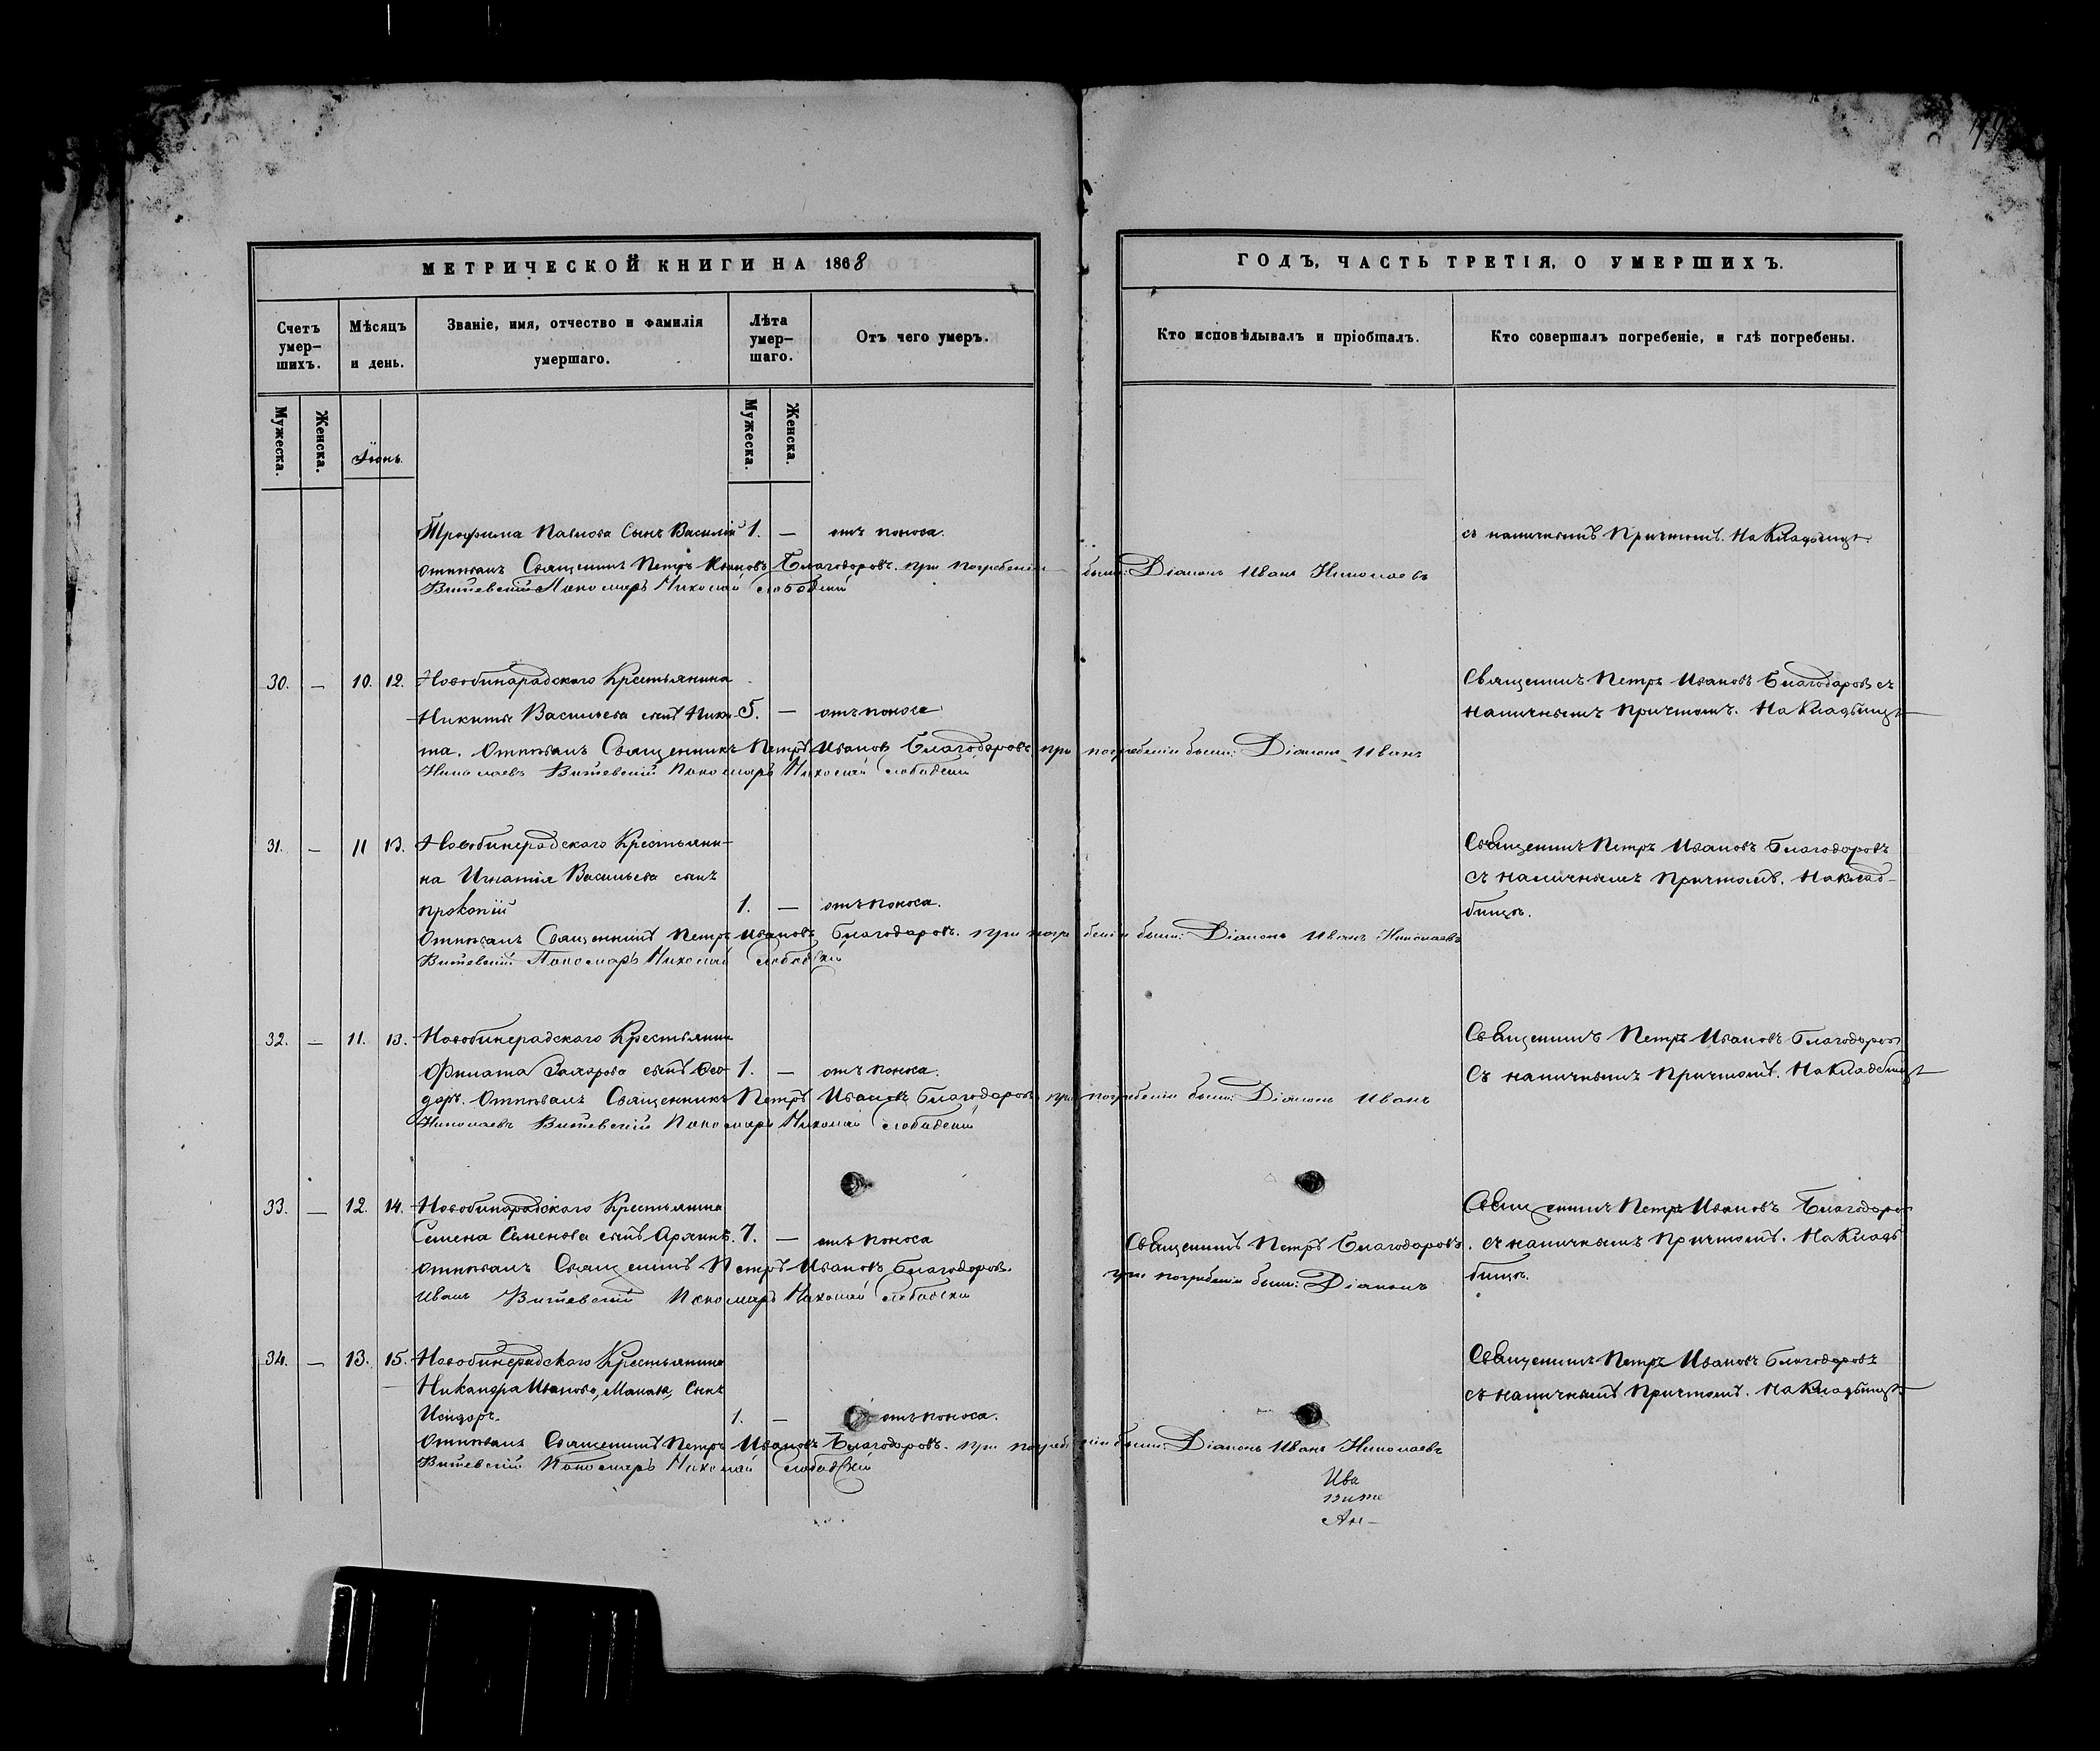 МЕТРИЧЕСКОЙ КНИГИ НА 1868
ГОДЪ, ЧАСТЬ ТРЕТІЯ, О УМЕРШИХЪ.
Счетъ умер-шихъ.
Мѣсяцъ и день.
Званіе, имя, отчество и фамилія умершаго.
Лѣта умер-шаго.
Отъ чего умеръ.
Кто исповѣдывалъ и пріобщалъ.
Кто совершалъ погребеніе, и гдѣ погребены.
Мужеска.
Женска.
Іюнь.
Мужеска.
Женска.
Трофима Павлова Сынъ Василій 1. — отъ поноса.
съ наличнымъ Причтомъ. На Кладбищѣ.
Отпѣвалъ Священникъ Петръ Ивановъ Благодаровъ. при погребеніи были: Діаконъ Иванъ Николаевъ
Витевскій Пономарь Николай
30. — 10. 12. Новобинарадскаго Крестьянина
Священникъ Петръ Ивановъ Благодаровъ съ
Никиты Васильева сынъ Ники- 5. — отъ поноса
наличнымъ Причтомъ. На Кладбищѣ
та. Отпѣвалъ Священникъ Петръ Ивановъ Благодаровъ при погребеніи были: Діаконъ Иванъ
Николаевъ Витевскій Пономарь Николай
31. — 11 13. Новобинерадскаго Крестьяни-
Священникъ Петръ Ивановъ Благодаровъ
на Игнатія Васильева сынъ
съ наличнымъ Причтомъ. На клад-
Прокопій 1. — отъ поноса.
бищѣ.
Отпѣвалъ Священникъ Петръ Ивановъ Благодаровъ. при погребеніи были: Діаконъ Иванъ Николаевъ
Витевскій Пономарь Николай
32. — 11. 13. Новобинерадскаго Крестьянин
Священникъ Петръ Ивановъ Благодаров
Филата Захарова сынъ Ѳео- 1. — отъ поноса.
Съ наличнымъ Причтомъ. На Кладбищѣ
доръ. Отпѣвалъ Священникъ Петръ Ивановъ Благодаровъ при погребеніи были: Діаконъ Иванъ
Николаевъ Витевскій Пономарь Николай
33. — 12. 14. Новобинарадскаго Крестьянина
Священникъ Петръ Ивановъ Благодаро
Семена Семенова сынъ Архипъ. 7. — отъ поноса
Священникъ Петръ Благодаровъ.
съ наличнымъ Причтомъ. На Кладъ
Отпѣвалъ Священникъ Петръ Ивановъ Благодаровъ.
при погребеніи были: Діаконъ
бищѣ.
Иванъ Витевскій Пономарь Николай
34. — 13. 15. Новобинерадскаго Крестьянина
Священникъ Петръ Ивановъ Благодаровъ
Никандра Иванова, Сынъ
съ наличнымъ Причтомъ. На Кладбищѣ
Исидоръ. 1. — отъ поноса.
Отпѣвалъ Священникъ Петръ Ивановъ Благодаровъ. при погребеніи были: Діаконъ Иванъ Николаевъ
Витевскій Пономарь Николай
Ива
вите